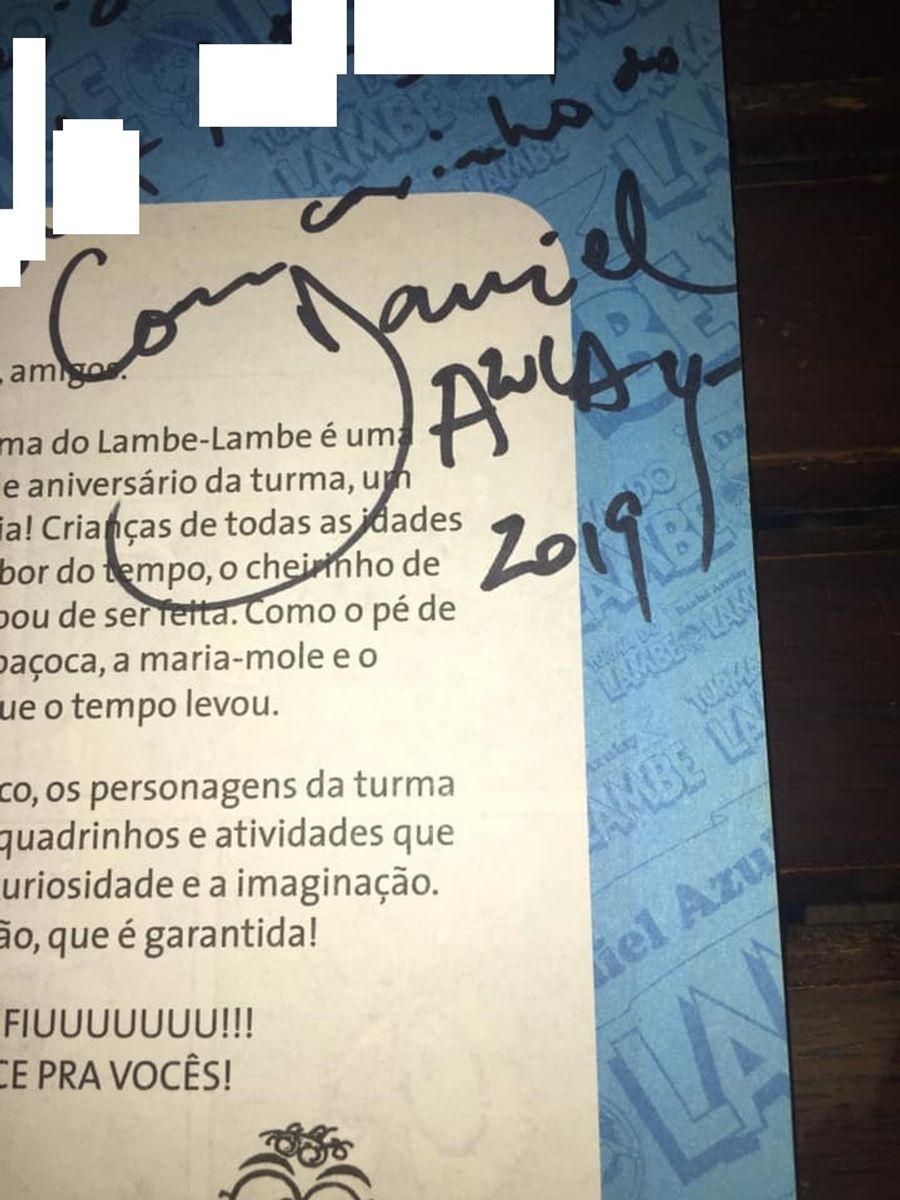 Com carinho do
Daniel
AZULAY
2019
, amigos.
ma do Lambe-Lambe é uma
e aniversário da turma, um
ia! Crianças de todas as idades
bor do tempo, o cheirinho de
bou de ser feita. Como o pé de
paçoca, a maria-mole e o
ue o tempo levou.
co, os personagens da turma
quadrinhos e atividades que
uriosidade e a imaginação.
ão, que é garantida!
FIUUUUUUU!!!
CE PRA VOCÊS!